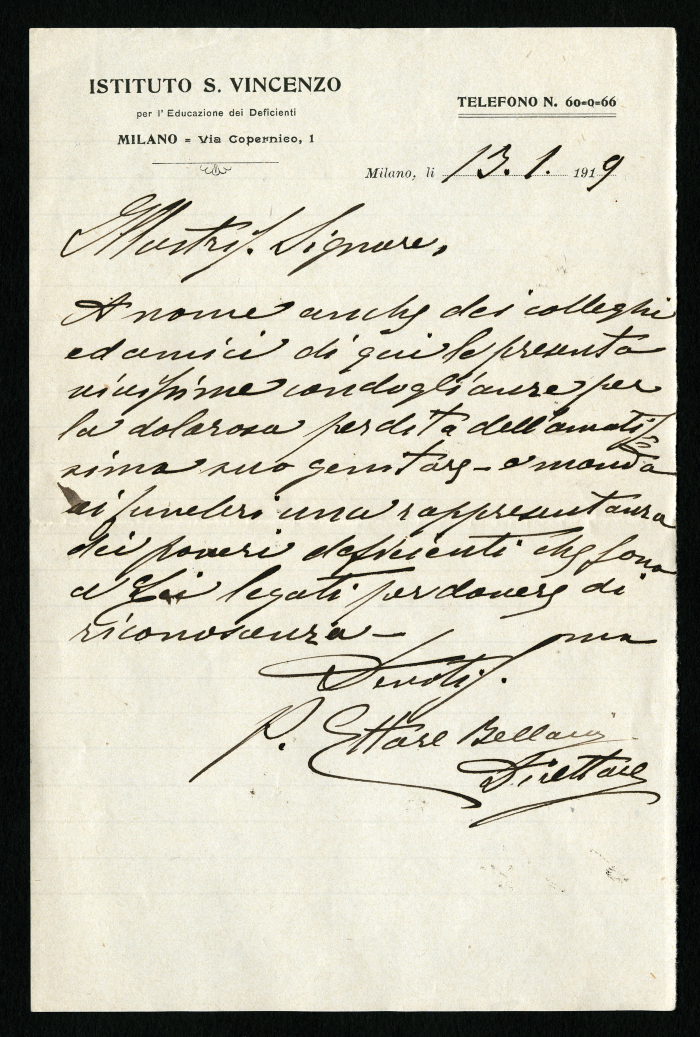 ISTITUTO S. VINCENZO
per l'Educazione dei Deficienti
MILANO = Via Copernico, 1
TELEFONO N. 60=0=66
Milano, li 13. 1. 1919
Illustris. Signore,
A nome anche dei colleghi
ed amici di qui le presento
vivissime condoglianze per
la dolorosa perdita dell'amatis
simo suo genitore - e mando
ai funebri una rappresentanza
dei poveri deficienti che sono
a Lei legati per dovere di
riconoscenza -
Devotis.
P. Ettore Bellani
Direttore